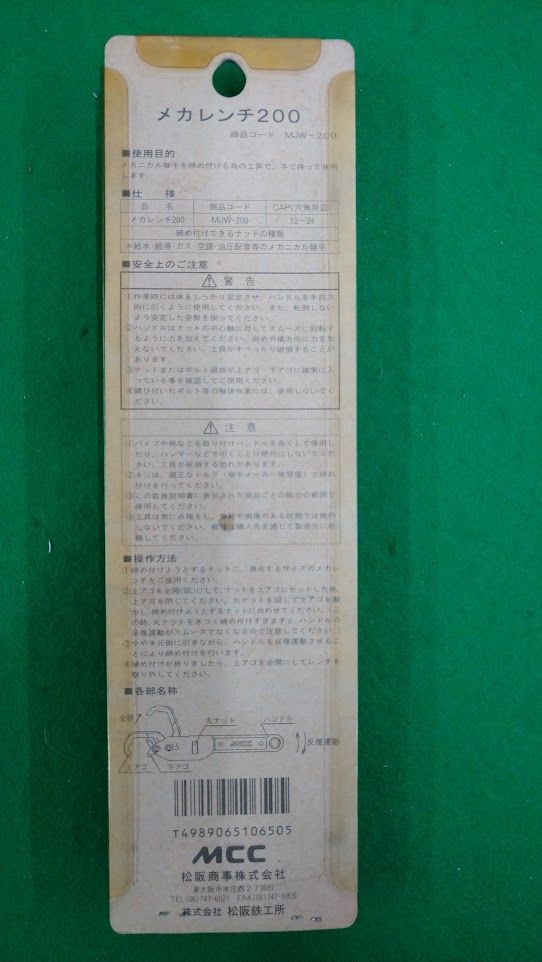 メカレンチ200
商品コード MJW-200
■使用目的
メカニカル継手を締め付ける為の工具で、手で持って使用
します。
■仕　様
品　名 商品コード CAP(六角対辺)
メカレンチ200 MJW-200 12〜24
締め付けできるナットの種類
*給水・給湯・ガス・空調・油圧配管等のメカニカル継手
■安全上のご注意
⚠ 警 告
①作業時には体をしっかり安定させ、ハンドルを手前方
向に引くように使用してください。また、転倒しない
よう安定した姿勢を保ってください。
②ハンドルはナットの中心軸に対してスムーズに回転す
るように力を加えてください。斜めや横方向に力を加
えないでください。工具がすべったり破損することが
あります。
③ナットまたはボルト頭部が上アゴ・下アゴに確実に入
っている事を確認してご使用ください。
④錆び付いたボルト等の解体作業には、使用しないでく
ださい。
⚠ 注 意
①パイプや棒などを取り付けハンドルを長くして使用し
たり、ハンマーなどで叩くことは絶対にしないでくだ
さい。工具が破損する恐れがあります。
②ネジは、適正なトルク(継手メーカー推奨値)で締め
付けを行ってください。
③この取扱説明書に表示された商品ごとの能力の範囲で
使用してください。
④工具は常に点検をし、摩耗や損傷のある状態では使用
しないでください。修理は購入先を通じて製造元に依
頼してください。
■操作方法
①締め付けようとするナットに、適合するサイズのメカレ
ンチをご使用ください。
②上アゴを全開(図)にして、ナットを上アゴにセットした後、
上アゴを閉じてください。丸ナットを回して上アゴを動
かし、締め付けようとするナットに合わせてください。(こ
の時、丸ナットをきつく締め付けすぎますと、ハンドルの
反復運動がスムーズでなくなるので注意してください。)
③やや手元側に引きながら、ハンドルを反復運動させるこ
とにより締め付けを行います。
④締め付けが終りましたら、上アゴを全開にしてレンチを
取り外してください。
■各部名称
全開
丸ナット
ハンドル
MCC
反復運動
上アゴ
下アゴ
T4989065106505
MCC
松阪商事株式会社
東大阪市本庄西2丁目82
TEL(06)747-6921 FAX(06)747-6926
株式会社 松阪鉄工所